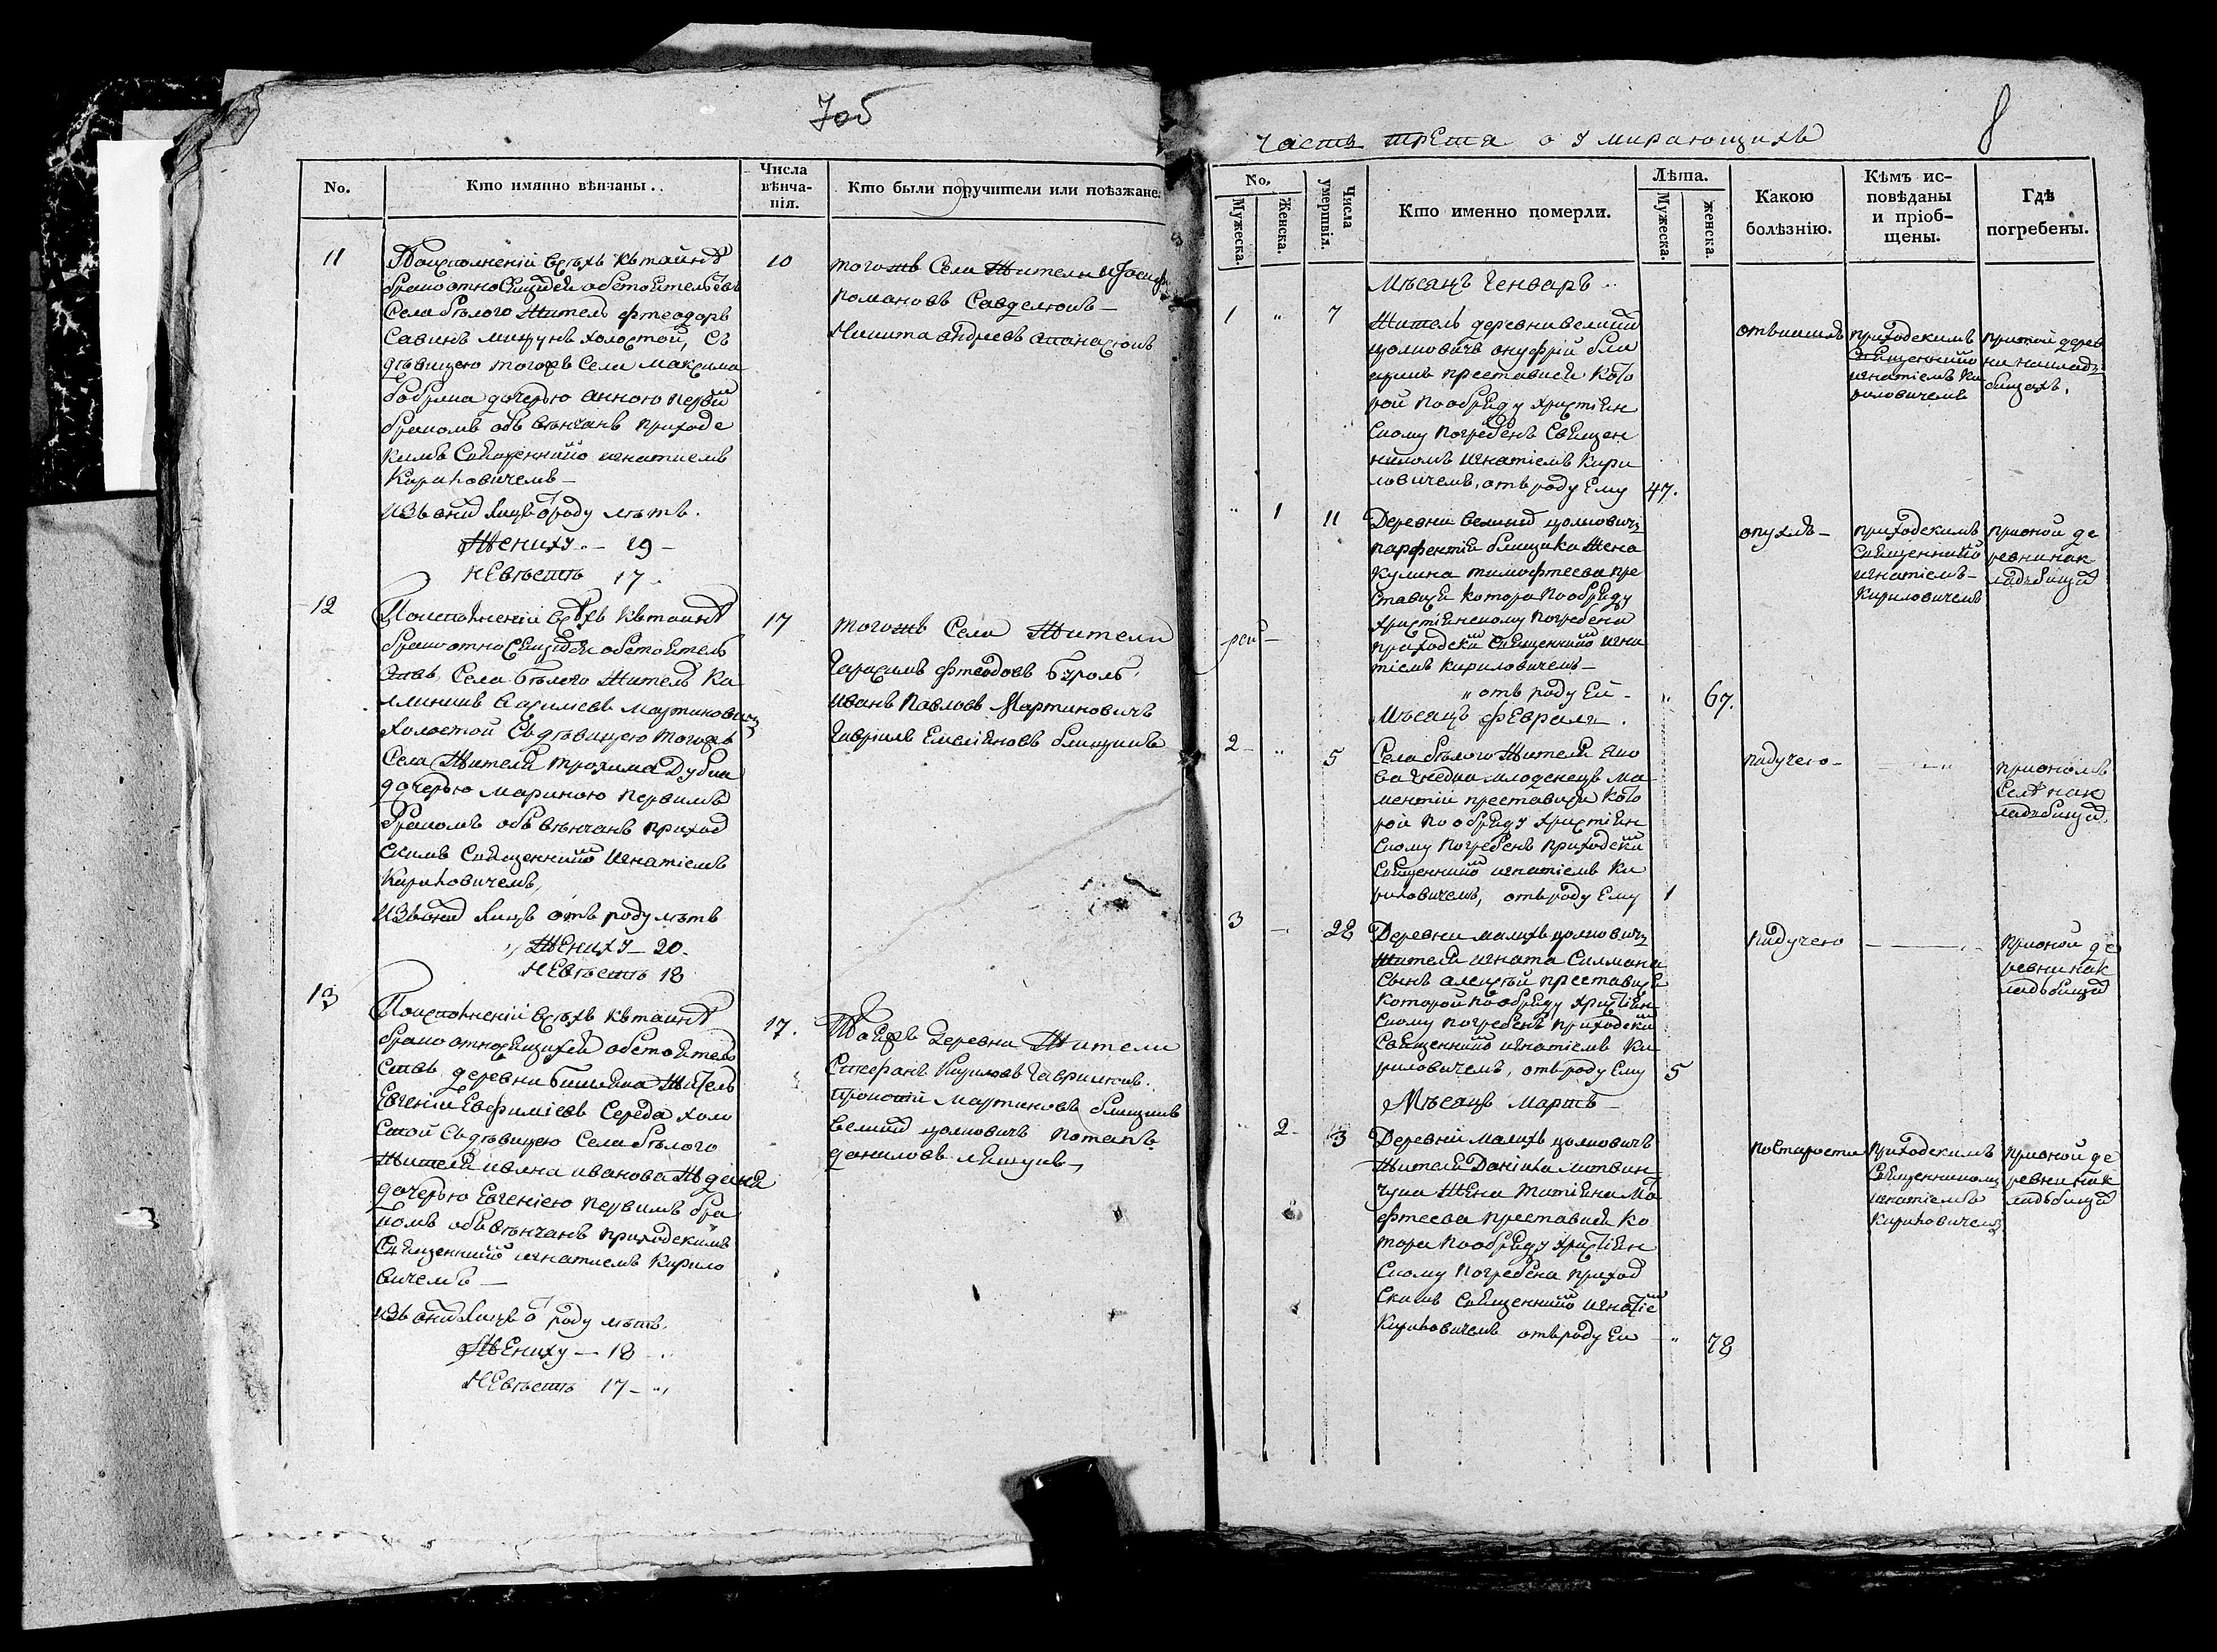 7об
No.
Кто имянно вѣнчаны.
Числа вѣнча-
нія.
Кто были поручители или поѣзжане.
11
По исполненіи всѣхъ къ таинѣ
брако относящихся обстоятельствъ
Села бѣлого житель фтеодоръ
Савинъ холостой, Съ
дѣвицею тогожъ Села максима
бобрика дочерью анною первым
бракомъ объвѣнчанъ приходс
кимъ Священником игнатиемъ
Кириловичемъ –
Изъ оних лицъ от роду лѣтъ.
Жениху – 29 –
Невѣстѣ 17
10
тогожъ Села Жители Иосиф
романовъ Савделюкъ –
Никита андреевъ апанасюкъ
12
По исполненіи всѣхъ къ таинѣ
брако относящихся обстоятель
ствъ, Села бѣлого Житель Ка
мартиновичъ
холостой Съ дѣвицею тогожъ
Села Жителя трохима Дубика
дочерью мариною первимъ
бракомъ объвѣнчанъ приход
скимъ Священником Игнатіемъ
Кириловичемъ,
Изъ оних лицъ отъ роду лѣтъ
Жениху – 20.
Невѣстѣ 18
17
тогожъ Села Жители
Герасимъ фтеодоовъ Буроль
Иванъ Павловъ Мартиновичъ
Гавріилъ Емеліяновъ блищикъ
13
По исполненіи всѣхъ къ таинѣ
брако относящихся обстоятель
ствъ деревни Бишляка Житель
Евгеній Евфиміевъ Середа холо
стой Съ дѣвицею Села бѣлого
Жителя ивана иванова
дочерью Евгеніею первимъ бра
комъ объвѣнчанъ приходскимъ
Священником игнатиемъ Кирило
вичемъ –
Изъ оних лицъ от роду лѣтъ.
Жениху – 18
Невѣстѣ 17 –
17.
Тоежъ Деревни Жители
Стефанъ Кириловъ Гаврилюкъ.
Прокопій Мартиновъ блищикъ
великих цолковичъ Потапъ
даниловъ лящукъ –
8
Часть трета о умирающихъ
No.
Мужеска.
Женска.
Числа
умертвія.
Кто именно померли.
Лѣта.
Мужеска.
женска.
Какою
болѣзнію.
Кѣмъ ис-
повѣданы
и пріоб-
щены.
Гдѣ
погребены.
Мѣсяцъ Генваръ
1
"
7
Житель деревни великих
цолковичъ онуфрій бли
щикъ преставися кото
рой по обряду христіян
скому погребенъ Священ
никомъ Игнатіемъ Кири
ловичемъ, отъ роду Ему
47.
приходскимъ
Священником
игнатіемъ Ки
риловичемъ
при той дерев
ни на кладъ
бищахъ.
"
1
11
Деревни великих цолковичъ
парфентія блищика Жена
Кулина тимофтеева пре
ставися котора по обряду
христіянскому погребена
приходским Священником игна
тіемъ Кириловичемъ –
отъ роду Ей –
"
67.
опухлъ –
приходскимъ
Священником
игнатіемъ –
Кириловичемъ
при оной де
ревни на к
ладъбищах
Мѣсяцъ февраля.
2 –
"
5
Села бѣлого Жителя яко
ва гнедка младенецъ ма
ментій преставися кото
рой по обряду христіян
скому погребенъ приходским
Священником игнатіемъ Ки
риловичемъ, отъ роду Ему
1
падучего –
при ономъ
Селѣ на к
ладъбищах.
3
–
22
Деревни малихъ цолковичъ
Жителя игната Силмана
Сынъ алексѣй преставися
которой по обряду христіян
скому погребенъ приходским
Священником игнатіемъ Ки
риловичемъ, отъ роду Ему
5
падучего
при оной де
ревни на к
ладъбищах
Мѣсяцъ Мартъ –
"
2 –
3
Деревни малихъ цолковичъ
Жителя Даніила литвин
чука Жена татіяна ма
фтеева преставися ко
тора по обряду христіян
скому погребена приход
скимъ Священником игнатіе
Кириловичемъ отъ роду Ей –
"
78
по старости
приходскимъ
Священникомъ
игнатіемъ
Кириловичемъ
при оной де
ревни на к
ладъбищах